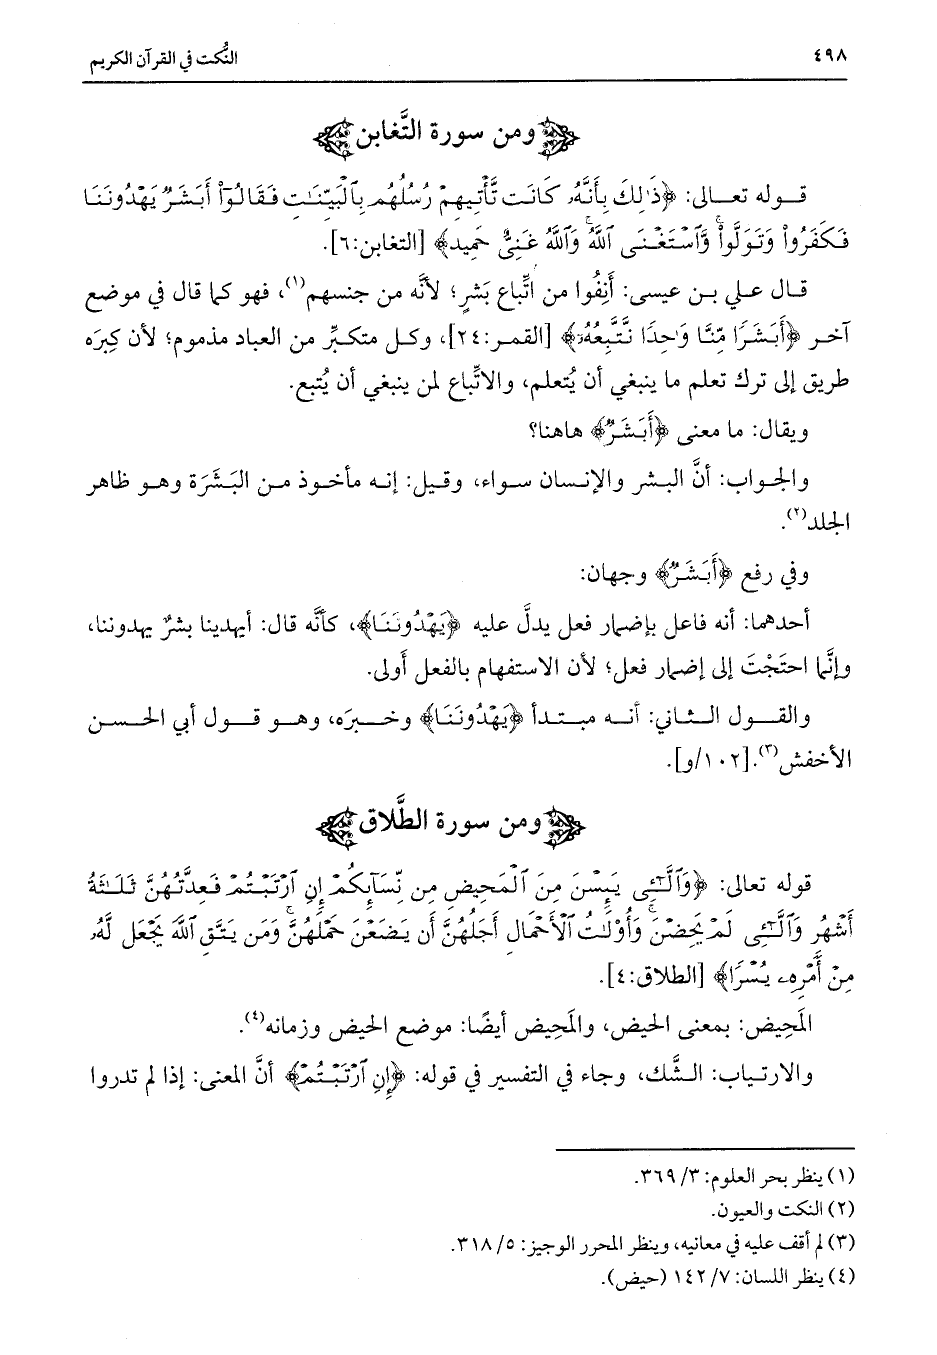 ٤٩٨ النُّكت في القرآن الكريم
ومن سورة التَّغابن
قوله تعالى: ﴿ذَٰلِكَ بِأَنَّهُۥ كَانَت تَّأْتِيهِمْ رُسُلُهُم بِٱلْبَيِّنَٰتِ فَقَالُوٓا۟ أَبَشَرٌ يَهْدُونَنَا
فَكَفَرُوا۟ وَتَوَلَّوا۟ ۚ وَّٱسْتَغْنَى ٱللَّهُ ۚ وَٱللَّهُ غَنِىٌّ حَمِيدٌ﴾ [التغابن:٦].
قال علي بن عيسى: أَنِفُوا من اتِّباع بَشرٍ؛ لأنَّه من جنسهم(١)، فهو كما قال في موضع
آخر ﴿أَبَشَرًا مِّنَّا وَٰحِدًا نَّتَّبِعُهُۥٓ﴾ [القمر:٢٤]، وكل متكبِّر من العباد مذموم؛ لأن كِبرَه
طريق إلى ترك تعلم ما ينبغي أن يُتعلم، والاتِّباع لمن ينبغي أن يُتبع.
ويقال: ما معنى ﴿أَبَشَرٌ﴾ هاهنا؟
والجواب: أنَّ البشر والإنسان سواء، وقيل: إنه مأخوذ من البَشَرَة وهو ظاهر
الجلد(٢).
وفي رفع ﴿أَبَشَرٌ﴾ وجهان:
أحدهما: أنه فاعل بإضمار فعل يدلَّ عليه ﴿يَهْدُونَنَا﴾، كأنَّه قال: أيهدينا بشرٌ يهدوننا،
وإنَّما احتَجْتَ إلى إضمار فعل؛ لأن الاستفهام بالفعل أولى.
والقول الثاني: أنه مبتدأ ﴿يَهْدُونَنَا﴾ وخبرَه، وهو قول أبي الحسن
الأخفش(٣).[١٠٢/و].
ومن سورة الطَّلاق
قوله تعالى: ﴿وَٱلَّٰٓـِٔى يَئِسْنَ مِنَ ٱلْمَحِيضِ مِن نِّسَآئِكُمْ إِنِ ٱرْتَبْتُمْ فَعِدَّتُهُنَّ ثَلَٰثَةُ
أَشْهُرٍ وَٱلَّٰٓـِٔى لَمْ يَحِضْنَ ۚ وَأُو۟لَٰتُ ٱلْأَحْمَالِ أَجَلُهُنَّ أَن يَضَعْنَ حَمْلَهُنَّ ۚ وَمَن يَتَّقِ ٱللَّهَ يَجْعَل لَّهُۥ
مِنْ أَمْرِهِۦ يُسْرًا﴾ [الطلاق:٤].
المَحِيض: بمعنى الحيض، والمَحِيض أيضًا: موضع الحيض وزمانه(٤).
والارتياب: الشَّك، وجاء في التفسير في قوله: ﴿إِنِ ٱرْتَبْتُمْ﴾ أنَّ المعنى: إذا لم تدروا
(١) ينظر بحر العلوم: ٣/ ٣٦٩.
(٢) النكت والعيون.
(٣) لم أقف عليه في معانيه، وينظر المحرر الوجيز: ٥/ ٣١٨.
(٤) ينظر اللسان: ٧/ ١٤٢ (حيض).